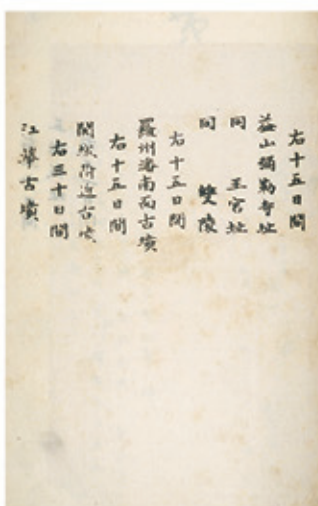 右十五日間
益山彌勒寺址
同 王宮址
同 雙陵
右十五日間
羅州潘南面古墳
右十五日間
開城附近古墳
右三十日間
江華古墳